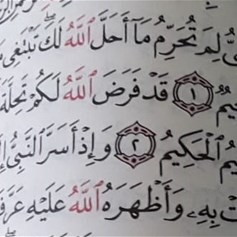 لِمَ تُحَرِّمُ مَآ أَحَلَّ ٱللَّهُ لَكَ تَبْتَغِى
١ قَدْ فَرَضَ ٱللَّهُ لَكُمْ تَحِلَّةَ
ٱلْحَكِيمُ ٢ وَإِذْ أَسَرَّ ٱلنَّبِىُّ
بِهِۦ وَأَظْهَرَهُ ٱللَّهُ عَلَيْهِ عَرَّفَ